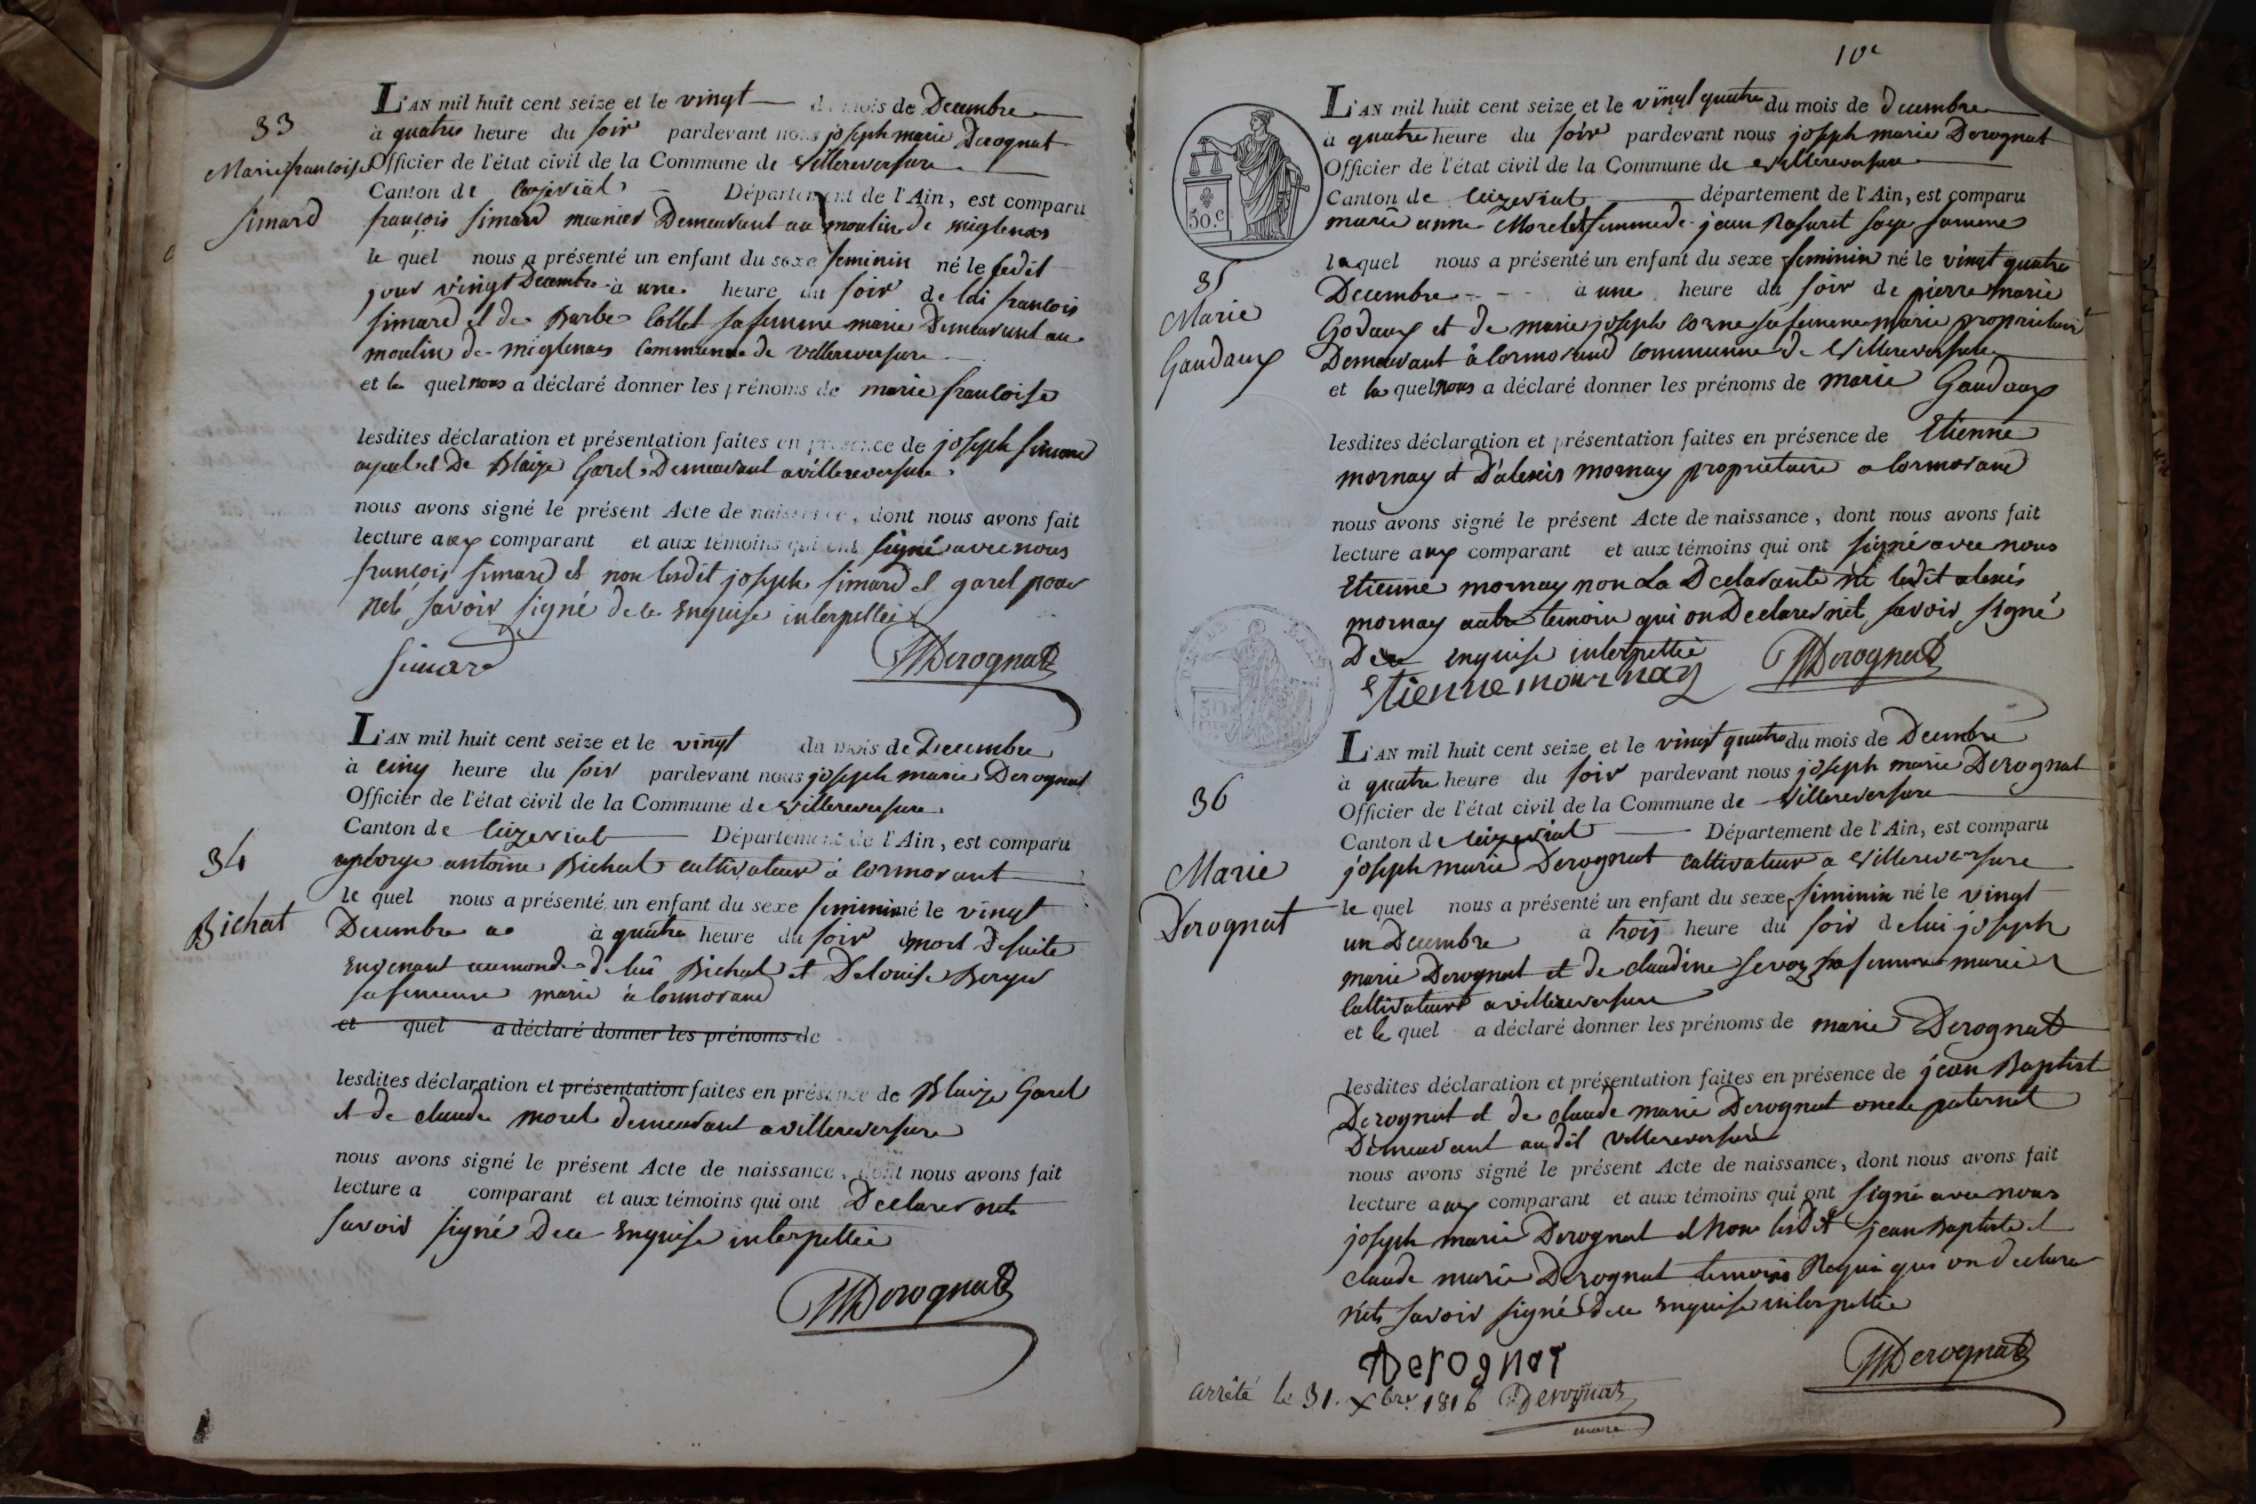 33
Marie françoise
Simard
L'AN mil huit cent seize et le vingt du mois de Decembre
à quatres heure du soir pardevant nous joseph marie Derognat
Officier de l'état civil de la Commune de Villereversure
Canton de Ceyzeriat Département de l'Ain, est comparu
françois simard meunier Demeurant au moulin de miglenas
le quel nous a présenté un enfant du sexe feminin né le ledit
jour vingt Decembre à une heure du soir de lui francois
simard et de Barbe Collet sa femme marié Demeurant au
moulin de miglenas Commune de villereversure
et le quel nous a déclaré donner les prénoms de marie francoise
lesdites déclaration et présentation faites en présence de joseph simard
ayeul et De Blaize Garel Demeurant a villereversure
nous avons signé le présent Acte de naissance, dont nous avons fait
lecture aux comparant et aux témoins qui ont signé avec nous
françois simard et non lesdit joseph simard et garel pour
netre savoir signé de ce enquise interpellée
simard
JMDerognat
34
Bichat
L'AN mil huit cent seize et le vingt du mois de Decembre
à cinq heure du soir pardevant nous joseph marie Derognat
Officier de l'état civil de la Commune de Villereversure
Canton de Ceyzeriat Département de l'Ain, est comparu
antoine Bichat cultivateur à cormorant
le quel nous a présenté un enfant du sexe feminin né le vingt
Decembre à quatre heure du soir mort de suite
en venant au monde de lui Bichat et De louise Berger
sa femme marié à Cormorand
et quel a déclaré donner les prénoms de
lesdites déclaration et présentation faites en présence de Blaize Garel
et de claude morel demeurant a villereversure
nous avons signé le présent Acte de naissance, dont nous avons fait
lecture a comparant et aux témoins qui ont Declarer netre
savoir signé De ce enquise interpellée
JMDerognat
10e
50.c
35
Marie
Gaudaux
L'AN mil huit cent seize et le vingt quatre du mois de decembre
à quatre heure du soir pardevant nous joseph marie Derognat
Officier de l'état civil de la Commune de Villereversure
Canton de Ceyzeriat département de l'Ain, est comparu
marie anne Morelet femme de jean sage famme
laquel nous a présenté un enfant du sexe feminin né le vingt quatre
Decembre à une heure du soir de pierre marie
Godaux et de marie joseph Corne sa femme marié proprietaire
Demeurant à Cormorand Commune de Villereversure
et la quel nous a déclaré donner les prénoms de marie Gaudaux
lesdites déclaration et présentation faites en présence de Etienne
mornay et D'alexis mornay proprietaire a Cormorand
nous avons signé le présent Acte de naissance, dont nous avons fait
lecture aux comparant et aux témoins qui ont signé avec nous
Etienne mornay non La Declarante ni ledit alexis
mornay autre temoin qui on Declarer netre savoir signé
De ce enquise interpellée
etienne mournay
JMDerognat
36
Marie
Derognat
L'AN mil huit cent seize et le vingt quatre du mois de Decembre
à quatre heure du soir pardevant nous joseph marie Derognat
Officier de l'état civil de la Commune de Villereversure
Canton de Ceyzeriat Département de l'Ain, est comparu
joseph marie Derognat cultivateur a Villereversure
le quel nous a présenté un enfant du sexe feminin né le vingt
un Decembre à trois heure du soir de lui joseph
marie Derognat et de claudine sevoz sa femme marié
Cultivateur a villereversure
et le quel a déclaré donner les prénoms de marie Derognat
lesdites déclaration et présentation faites en présence de jean Baptiste
Derognat et de claude marie Derognat oncle paternel
Demeurant audit Villereversure
nous avons signé le présent Acte de naissance, dont nous avons fait
lecture aux comparant et aux témoins qui ont signé avec nous
joseph marie Derognat et non lesdit jean Baptiste et
claude marie Derognat temoins Requi qui on declarer
netre savoir signé de ce enquise interpellée
Derognat
JMDerognat
arrêté le 31. Xbre 1816 Derognat
maire